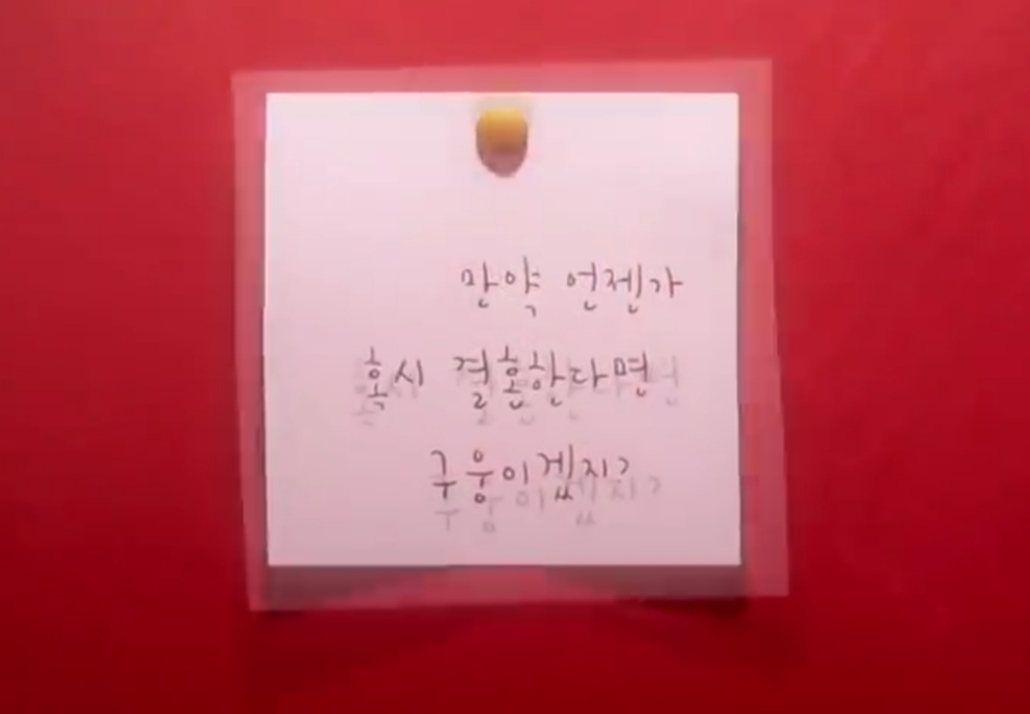 만약 언젠가
혹시 결혼한다면
구웅이겠지?